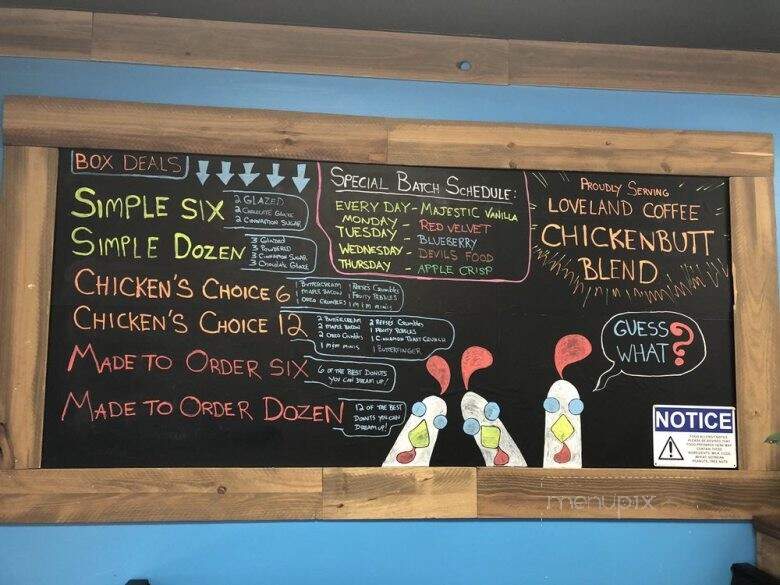 BOX DEALS
SIMPLE SIX
2 GLAZED
2 CHOCOLATE GLAZE
2 CINNAMON SUGAR
SIMPLE DOZEN
3 GLAZED
3 POWDERED
3 CINNAMON SUGAR
3 CHOCOLATE GLAZE
CHICKEN'S CHOICE 6
1 BUTTERCREAM
1 MAPLE BACON
1 OREO CRUMBLES
1 REESE'S CRUMBLES
1 FRUITY PEBBLES
1 M&M MINIS
CHICKEN'S CHOICE 12
2 BUTTERCREAM
2 MAPLE BACON
2 OREO CRUMBLES
1 M&M MINIS
2 REESE'S CRUMBLES
1 FRUITY PEBBLES
1 CINNAMON TOAST CRUNCH
1 BUTTERFINGER
MADE TO ORDER SIX
6 OF THE BEST DONUTS
YOU CAN DREAM UP!
MADE TO ORDER DOZEN
12 OF THE BEST
DONUTS YOU CAN
DREAM UP!
SPECIAL BATCH SCHEDULE:
EVERY DAY - MAJESTIC VANILLA
MONDAY - RED VELVET
TUESDAY - BLUEBERRY
WEDNESDAY - DEVILS FOOD
THURSDAY - APPLE CRISP
PROUDLY SERVING
LOVELAND COFFEE
CHICKENBUTT
BLEND
GUESS
WHAT?
NOTICE
menupix